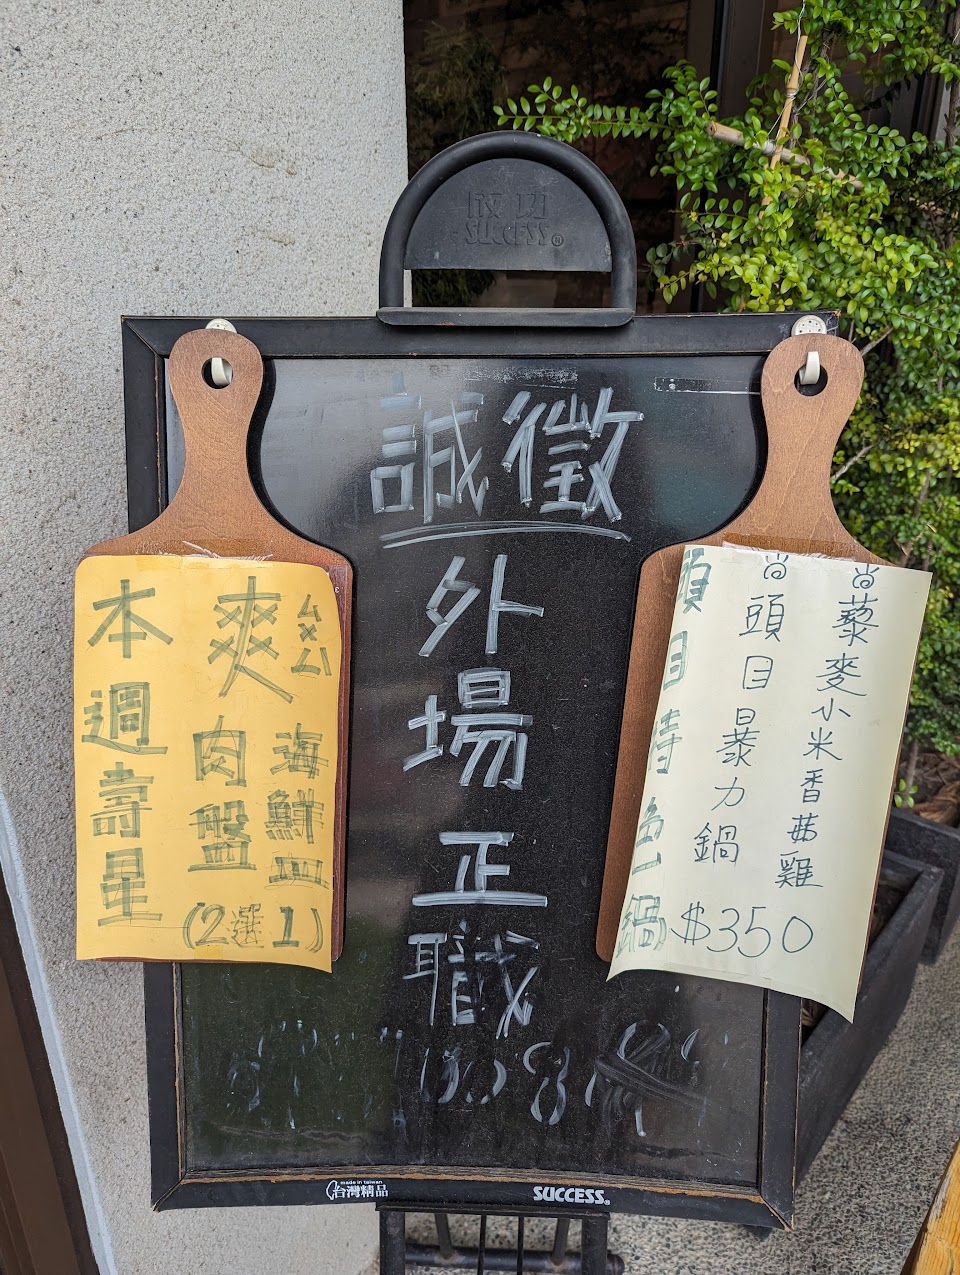 成功
SUCCESS®
誠徵
外場正職
本週壽星
爽肉盤
海鮮皿
(2選1)
頭目特色鍋
頭目暴力鍋
藜麥小米香菇雞
$350
made in taiwan
台灣精品
SUCCESS®